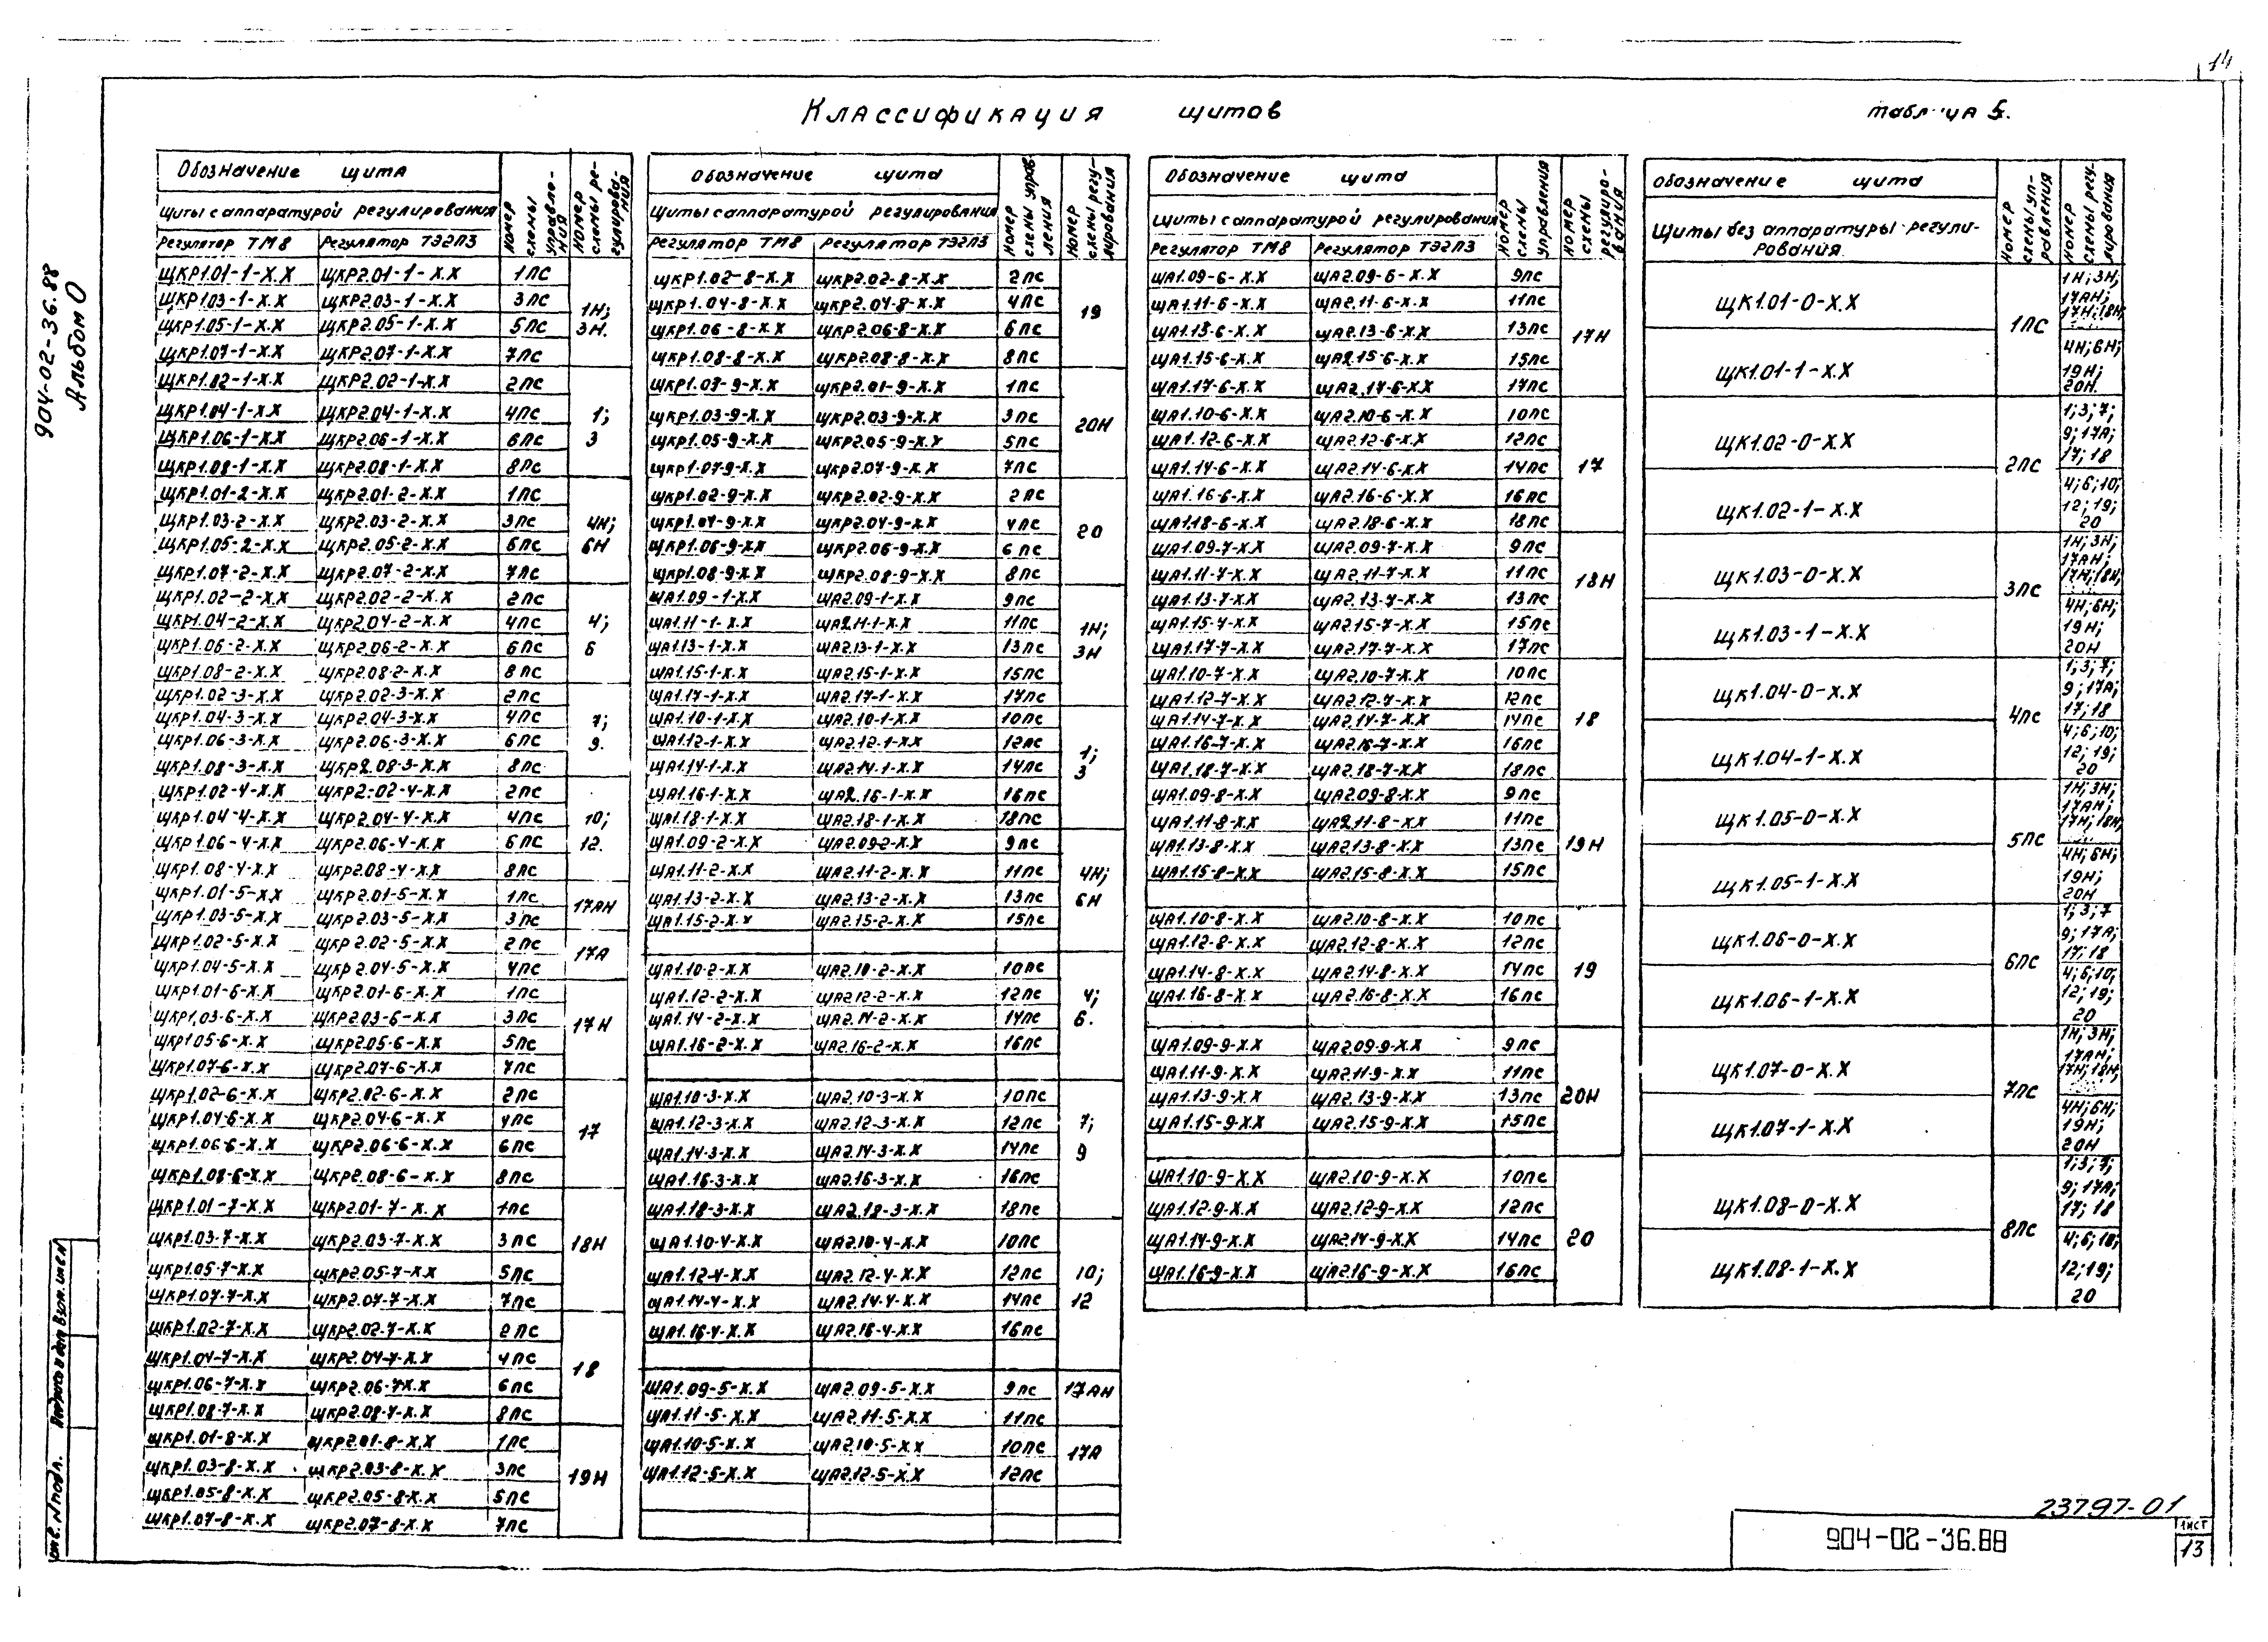 14
Классификация щитов
таблица 5.
904-02-36.88
Альбом 0
Обозначение щита
Щиты с аппаратурой регулирования
Регулятор ТМ8 Регулятор ТЭ2П3
Номер схемы управления
Номер схемы регулирования
ЩКР1.01-1-Х.Х ЩКР2.01-1-Х.Х 1ПС
ЩКР1.03-1-Х.Х ЩКР2.03-1-Х.Х 3ПС 1Н;
ЩКР1.05-1-Х.Х ЩКР2.05-1-Х.Х 5ПС 3Н.
ЩКР1.07-1-Х.Х ЩКР2.07-1-Х.Х 7ПС
ЩКР1.02-1-Х.Х ЩКР2.02-1-Х.Х 2ПС
ЩКР1.04-1-Х.Х ЩКР2.04-1-Х.Х 4ПС 1;
ЩКР1.06-1-Х.Х ЩКР2.06-1-Х.Х 6ПС 3
ЩКР1.08-1-Х.Х ЩКР2.08-1-Х.Х 8ПС
ЩКР1.01-2-Х.Х ЩКР2.01-2-Х.Х 1ПС
ЩКР1.03-2-Х.Х ЩКР2.03-2-Х.Х 3ПС 4Н;
ЩКР1.05-2-Х.Х ЩКР2.05-2-Х.Х 5ПС 6Н
ЩКР1.07-2-Х.Х ЩКР2.07-2-Х.Х 7ПС
ЩКР1.02-2-Х.Х ЩКР2.02-2-Х.Х 2ПС
ЩКР1.04-2-Х.Х ЩКР2.04-2-Х.Х 4ПС 4;
ЩКР1.06-2-Х.Х ЩКР2.06-2-Х.Х 6ПС 6
ЩКР1.08-2-Х.Х ЩКР2.08-2-Х.Х 8ПС
ЩКР1.02-3-Х.Х ЩКР2.02-3-Х.Х 2ПС
ЩКР1.04-3-Х.Х ЩКР2.04-3-Х.Х 4ПС 7;
ЩКР1.06-3-Х.Х ЩКР2.06-3-Х.Х 6ПС 9.
ЩКР1.08-3-Х.Х ЩКР2.08-3-Х.Х 8ПС
ЩКР1.02-4-Х.Х ЩКР2.02-4-Х.Х 2ПС
ЩКР1.04-4-Х.Х ЩКР2.04-4-Х.Х 4ПС 10;
ЩКР1.06-4-Х.Х ЩКР2.06-4-Х.Х 6ПС 12.
ЩКР1.08-4-Х.Х ЩКР2.08-4-Х.Х 8ПС
ЩКР1.01-5-Х.Х ЩКР2.01-5-Х.Х 1ПС 17АН
ЩКР1.03-5-Х.Х ЩКР2.03-5-Х.Х 3ПС
ЩКР1.02-5-Х.Х ЩКР2.02-5-Х.Х 2ПС 17А
ЩКР1.04-5-Х.Х ЩКР2.04-5-Х.Х 4ПС
ЩКР1.01-6-Х.Х ЩКР2.01-6-Х.Х 1ПС
ЩКР1.03-6-Х.Х ЩКР2.03-6-Х.Х 3ПС 17Н
ЩКР1.05-6-Х.Х ЩКР2.05-6-Х.Х 5ПС
ЩКР1.07-6-Х.Х ЩКР2.07-6-Х.Х 7ПС
ЩКР1.02-6-Х.Х ЩКР2.02-6-Х.Х 2ПС
ЩКР1.04-6-Х.Х ЩКР2.04-6-Х.Х 4ПС 17
ЩКР1.06-6-Х.Х ЩКР2.06-6-Х.Х 6ПС
ЩКР1.08-6-Х.Х ЩКР2.08-6-Х.Х 8ПС
ЩКР1.01-7-Х.Х ЩКР2.01-7-Х.Х 1ПС
ЩКР1.03-7-Х.Х ЩКР2.03-7-Х.Х 3ПС 18Н
ЩКР1.05-7-Х.Х ЩКР2.05-7-Х.Х 5ПС
ЩКР1.07-7-Х.Х ЩКР2.07-7-Х.Х 7ПС
ЩКР1.02-7-Х.Х ЩКР2.02-7-Х.Х 2ПС
ЩКР1.04-7-Х.Х ЩКР2.04-7-Х.Х 4ПС 18
ЩКР1.06-7-Х.Х ЩКР2.06-7Х.Х 6ПС
ЩКР1.08-7-Х.Х ЩКР2.08-7-Х.Х 8ПС
ЩКР1.01-8-Х.Х ЩКР2.01-8-Х.Х 1ПС
ЩКР1.03-8-Х.Х ЩКР2.03-8-Х.Х 3ПС 19Н
ЩКР1.05-8-Х.Х ЩКР2.05-8-Х.Х 5ПС
ЩКР1.07-8-Х.Х ЩКР2.07-8-Х.Х 7ПС
Обозначение щита
Щиты с аппаратурой регулирования
Регулятор ТМ8 Регулятор ТЭ2П3
Номер схемы управления
Номер схемы регулирования
ЩКР1.02-8-Х.Х ЩКР2.02-8-Х.Х 2ПС
ЩКР1.04-8-Х.Х ЩКР2.04-8-Х.Х 4ПС 19
ЩКР1.06-8-Х.Х ЩКР2.06-8-Х.Х 6ПС
ЩКР1.08-8-Х.Х ЩКР2.08-8-Х.Х 8ПС
ЩКР1.07-9-Х.Х ЩКР2.01-9-Х.Х 1ПС
ЩКР1.03-9-Х.Х ЩКР2.03-9-Х.Х 3ПС 20Н
ЩКР1.05-9-Х.Х ЩКР2.05-9-Х.Х 5ПС
ЩКР1.07-9-Х.Х ЩКР2.07-9-Х.Х 7ПС
ЩКР1.02-9-Х.Х ЩКР2.02-9-Х.Х 2ПС
ЩКР1.04-9-Х.Х ЩКР2.04-9-Х.Х 4ПС 20
ЩКР1.06-9-Х.Х ЩКР2.06-9-Х.Х 6ПС
ЩКР1.08-9-Х.Х ЩКР2.08-9-Х.Х 8ПС
ЩА1.09-1-Х.Х ЩА2.09-1-Х.Х 9ПС
ЩА1.11-1-Х.Х ЩА2.11-1-Х.Х 11ПС 1Н;
ЩА1.13-1-Х.Х ЩА2.13-1-Х.Х 13ПС 3Н
ЩА1.15-1-Х.Х ЩА2.15-1-Х.Х 15ПС
ЩА1.17-1-Х.Х ЩА2.17-1-Х.Х 17ПС
ЩА1.10-1-Х.Х ЩА2.10-1-Х.Х 10ПС
ЩА1.12-1-Х.Х ЩА2.12-1-Х.Х 12ПС 1;
ЩА1.14-1-Х.Х ЩА2.14-1-Х.Х 14ПС 3
ЩА1.16-1-Х.Х ЩА2.16-1-Х.Х 16ПС
ЩА1.18-1-Х.Х ЩА2.18-1-Х.Х 18ПС
ЩА1.09-2-Х.Х ЩА2.09-2-Х.Х 9ПС
ЩА1.11-2-Х.Х ЩА2.11-2-Х.Х 11ПС 4Н;
ЩА1.13-2-Х.Х ЩА2.13-2-Х.Х 13ПС 6Н
ЩА1.15-2-Х.Х ЩА2.15-2-Х.Х 15ПС
ЩА1.10-2-Х.Х ЩА2.10-2-Х.Х 10ПС
ЩА1.12-2-Х.Х ЩА2.12-2-Х.Х 12ПС 4;
ЩА1.14-2-Х.Х ЩА2.14-2-Х.Х 14ПС 6.
ЩА1.16-2-Х.Х ЩА2.16-2-Х.Х 16ПС
ЩА1.10-3-Х.Х ЩА2.10-3-Х.Х 10ПС
ЩА1.12-3-Х.Х ЩА2.12-3-Х.Х 12ПС 7;
ЩА1.14-3-Х.Х ЩА2.14-3-Х.Х 14ПС 9
ЩА1.16-3-Х.Х ЩА2.16-3-Х.Х 16ПС
ЩА1.18-3-Х.Х ЩА2.18-3-Х.Х 18ПС
ЩА1.10-4-Х.Х ЩА2.10-4-Х.Х 10ПС
ЩА1.12-4-Х.Х ЩА2.12-4-Х.Х 12ПС 10;
ЩА1.14-4-Х.Х ЩА2.14-4-Х.Х 14ПС 12
ЩА1.16-4-Х.Х ЩА2.16-4-Х.Х 16ПС
ЩА1.09-5-Х.Х ЩА2.09-5-Х.Х 9ПС 17АН
ЩА1.11-5-Х.Х ЩА2.11-5-Х.Х 11ПС
ЩА1.10-5-Х.Х ЩА2.10-5-Х.Х 10ПС 17А
ЩА1.12-5-Х.Х ЩА2.12-5-Х.Х 12ПС
Обозначение щита
Щиты с аппаратурой регулирования
Регулятор ТМ8 Регулятор ТЭ2П3
Номер схемы управления
Номер схемы регулирования
ЩА1.09-6-Х.Х ЩА2.09-6-Х.Х 9ПС
ЩА1.11-6-Х.Х ЩА2.11-6-Х.Х 11ПС
ЩА1.13-6-Х.Х ЩА2.13-6-Х.Х 13ПС 17Н
ЩА1.15-6-Х.Х ЩА2.15-6-Х.Х 15ПС
ЩА1.17-6-Х.Х ЩА2.17-6-Х.Х 17ПС
ЩА1.10-6-Х.Х ЩА2.10-6-Х.Х 10ПС
ЩА1.12-6-Х.Х ЩА2.12-6-Х.Х 12ПС
ЩА1.14-6-Х.Х ЩА2.14-6-Х.Х 14ПС 17
ЩА1.16-6-Х.Х ЩА2.16-6-Х.Х 16ПС
ЩА1.18-6-Х.Х ЩА2.18-6-Х.Х 18ПС
ЩА1.09-7-Х.Х ЩА2.09-7-Х.Х 9ПС
ЩА1.11-7-Х.Х ЩА2.11-7-Х.Х 11ПС 18Н
ЩА1.13-7-Х.Х ЩА2.13-7-Х.Х 13ПС
ЩА1.15-7-Х.Х ЩА2.15-7-Х.Х 15ПС
ЩА1.17-7-Х.Х ЩА2.17-7-Х.Х 17ПС
ЩА1.10-7-Х.Х ЩА2.10-7-Х.Х 10ПС
ЩА1.12-7-Х.Х ЩА2.12-7-Х.Х 12ПС
ЩА1.14-7-Х.Х ЩА2.14-7-Х.Х 14ПС 18
ЩА1.16-7-Х.Х ЩА2.16-7-Х.Х 16ПС
ЩА1.18-7-Х.Х ЩА2.18-7-Х.Х 18ПС
ЩА1.09-8-Х.Х ЩА2.09-8-Х.Х 9ПС
ЩА1.11-8-Х.Х ЩА2.11-8-Х.Х 11ПС
ЩА1.13-8-Х.Х ЩА2.13-8-Х.Х 13ПС 19Н
ЩА1.15-8-Х.Х ЩА2.15-8-Х.Х 15ПС
ЩА1.10-8-Х.Х ЩА2.10-8-Х.Х 10ПС
ЩА1.12-8-Х.Х ЩА2.12-8-Х.Х 12ПС
ЩА1.14-8-Х.Х ЩА2.14-8-Х.Х 14ПС 19
ЩА1.16-8-Х.Х ЩА2.16-8-Х.Х 16ПС
ЩА1.09-9-Х.Х ЩА2.09-9-Х.Х 9ПС
ЩА1.11-9-Х.Х ЩА2.11-9-Х.Х 11ПС
ЩА1.13-9-Х.Х ЩА2.13-9-Х.Х 13ПС 20Н
ЩА1.15-9-Х.Х ЩА2.15-9-Х.Х 15ПС
ЩА1.10-9-Х.Х ЩА2.10-9-Х.Х 10ПС
ЩА1.12-9-Х.Х ЩА2.12-9-Х.Х 12ПС
ЩА1.14-9-Х.Х ЩА2.14-9-Х.Х 14ПС 20
ЩА1.16-9-Х.Х ЩА2.16-9-Х.Х 16ПС
Обозначение щита
Щиты без аппаратуры регули-
рования
Номер схемы управления
Номер схемы регулирования
ЩК1.01-0-Х.Х 1ПС 1Н; 3Н;
17АН;
17Н; 18Н
ЩК1.01-1-Х.Х 4Н; 6Н;
19Н;
20Н.
ЩК1.02-0-Х.Х 2ПС 1; 3; 7;
9; 17А;
17; 18
ЩК1.02-1-Х.Х 4; 6; 10;
12; 19;
20
ЩК1.03-0-Х.Х 3ПС 1Н; 3Н;
17АН;
17Н; 18Н;
ЩК1.03-1-Х.Х 4Н; 6Н;
19Н;
20Н
ЩК1.04-0-Х.Х 4ПС 1; 3; 7;
9; 17А;
17; 18
ЩК1.04-1-Х.Х 4; 6; 10;
12; 19;
20
ЩК1.05-0-Х.Х 5ПС 1Н; 3Н;
17АН;
17Н; 18Н;
ЩК1.05-1-Х.Х 4Н; 6Н;
19Н;
20Н
ЩК1.06-0-Х.Х 6ПС 1; 3; 7
9; 17А;
17; 18
ЩК1.06-1-Х.Х 4; 6; 10;
12; 19;
20
ЩК1.07-0-Х.Х 7ПС 1Н; 3Н;
17АН;
17Н; 18Н;
ЩК1.07-1-Х.Х 4Н; 6Н;
19Н;
20Н
ЩК1.08-0-Х.Х 8ПС 1; 3; 7;
9; 17А;
17; 18
ЩК1.08-1-Х.Х 4; 6; 10;
12; 19;
20
23797-01
904-02-36.88
Лист
13
Инв. N подл. Подпись и дата Взам. инв. N